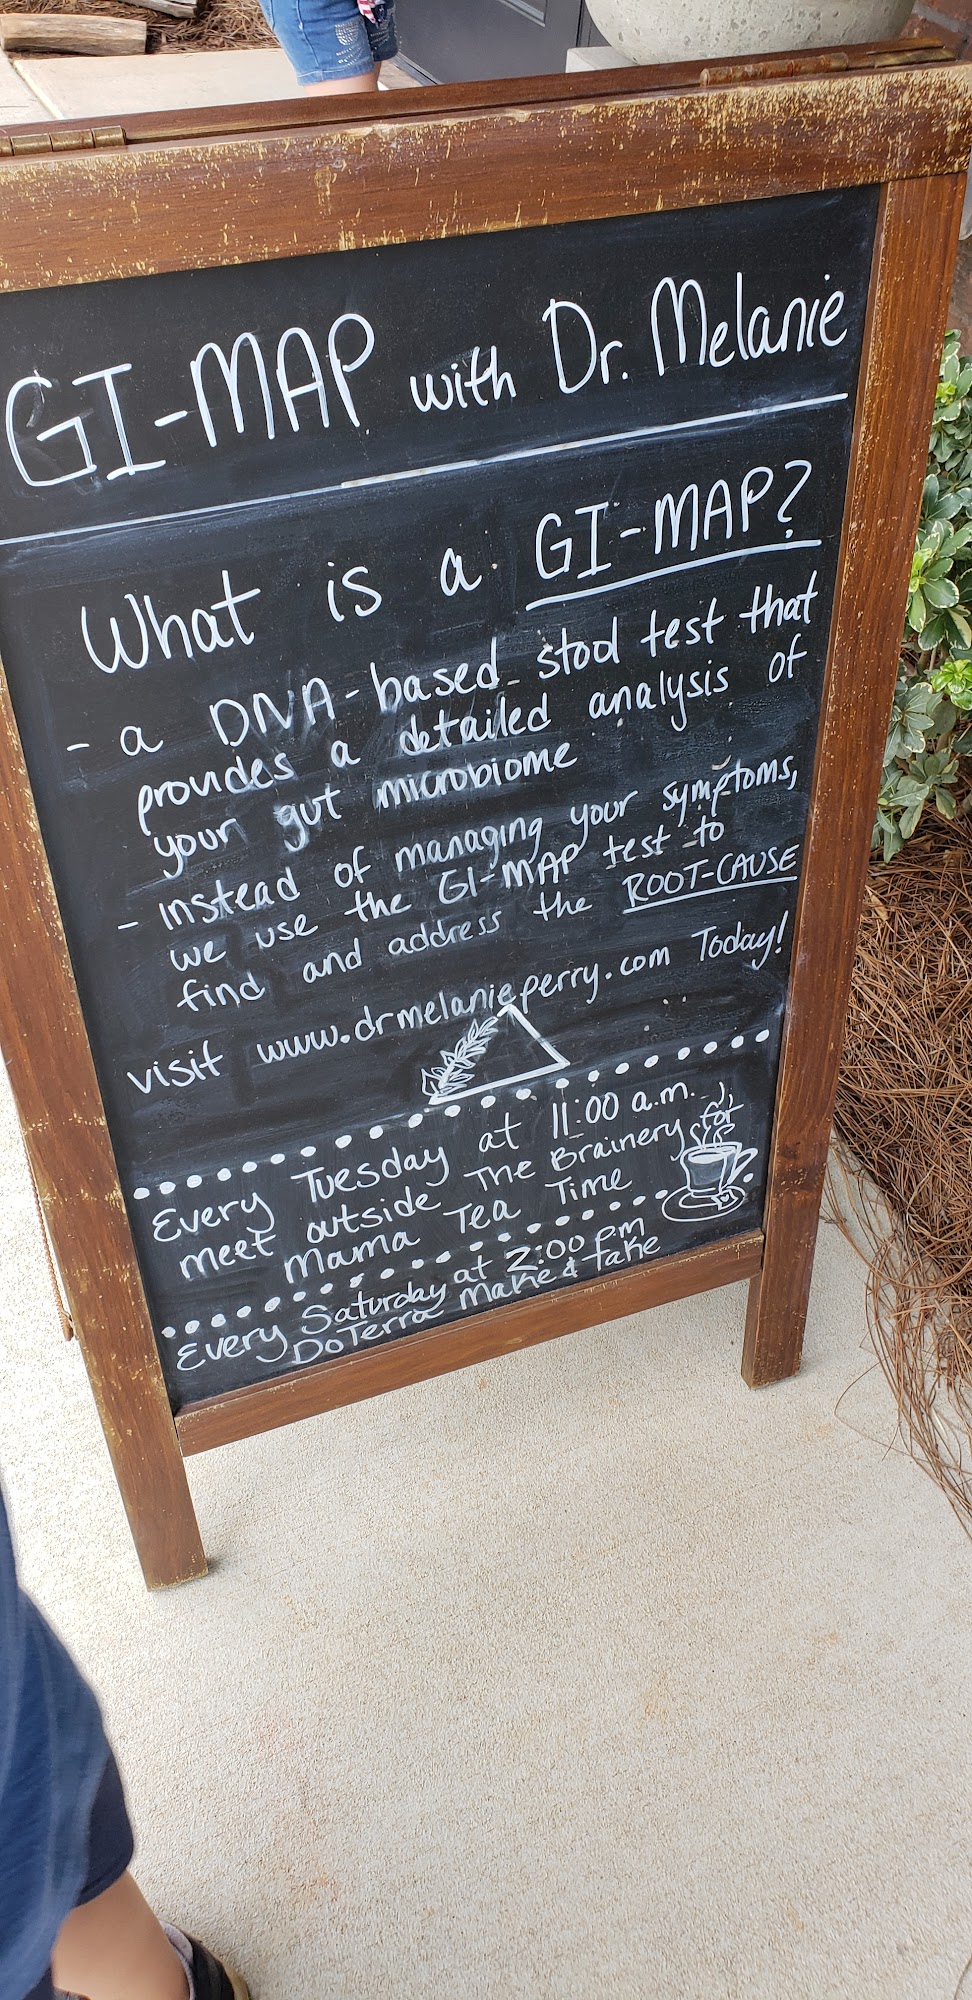 GI-MAP with Dr. Melanie
What is a GI-MAP?
- a DNA-based stool test that
provides a detailed analysis of
your gut microbiome
- instead of managing your symptoms,
we use the GI-MAP test to
find and address the ROOT-CAUSE
visit www.drmelanieperry.com Today!
Every Tuesday at 11:00 a.m.,
meet outside The Brainery for
Mama Tea Time
Every Saturday at 2:00 pm
DoTerra Make & Take